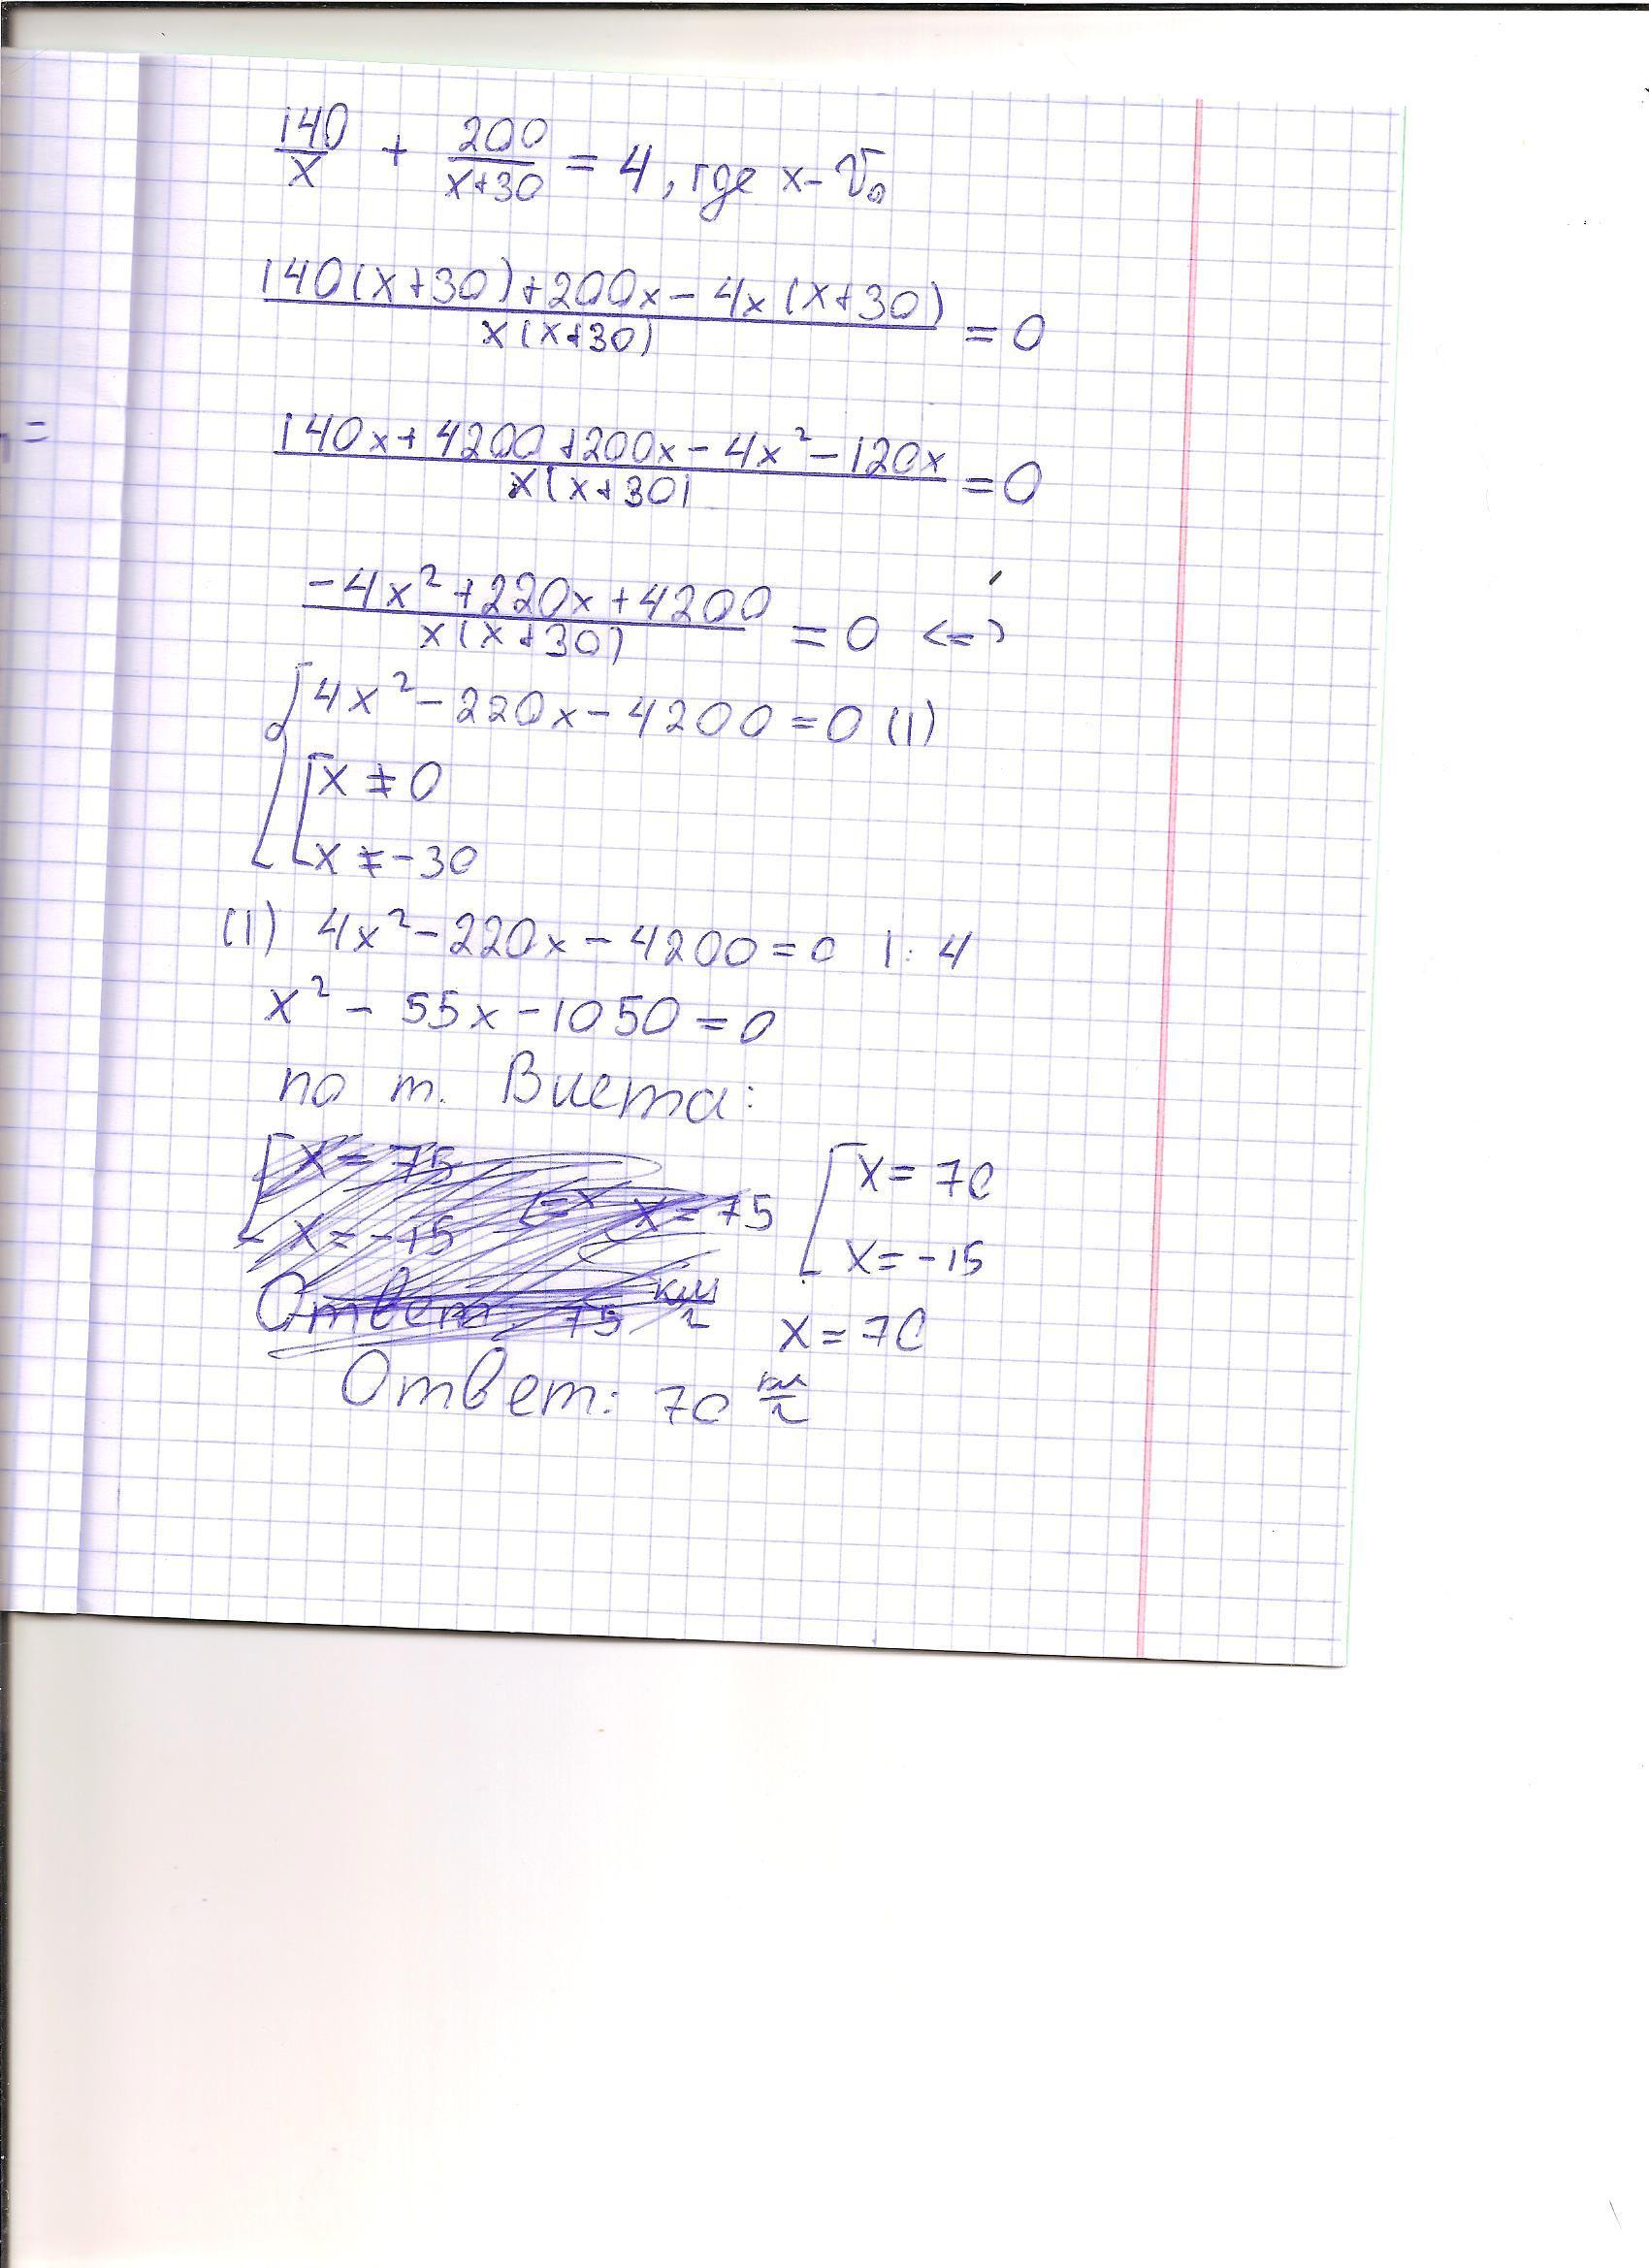 140/x + 200/(x+30) = 4, где x - V₀
(140(x+30)+200x-4x(x+30))/(x(x+30)) = 0
=
(140x+4200+200x-4x²-120x)/(x(x+30)) = 0
(-4x²+220x+4200)/(x(x+30)) = 0 <=>
4x²-220x-4200=0 (1)
x≠0
x≠-30
(1) 4x²-220x-4200=0 |:4
x²-55x-1050=0
по т. Виета:
x=75
x=-15
x=75
x=70
x=-15
Ответ 75 км/ч
x=70
Ответ: 70 км/ч